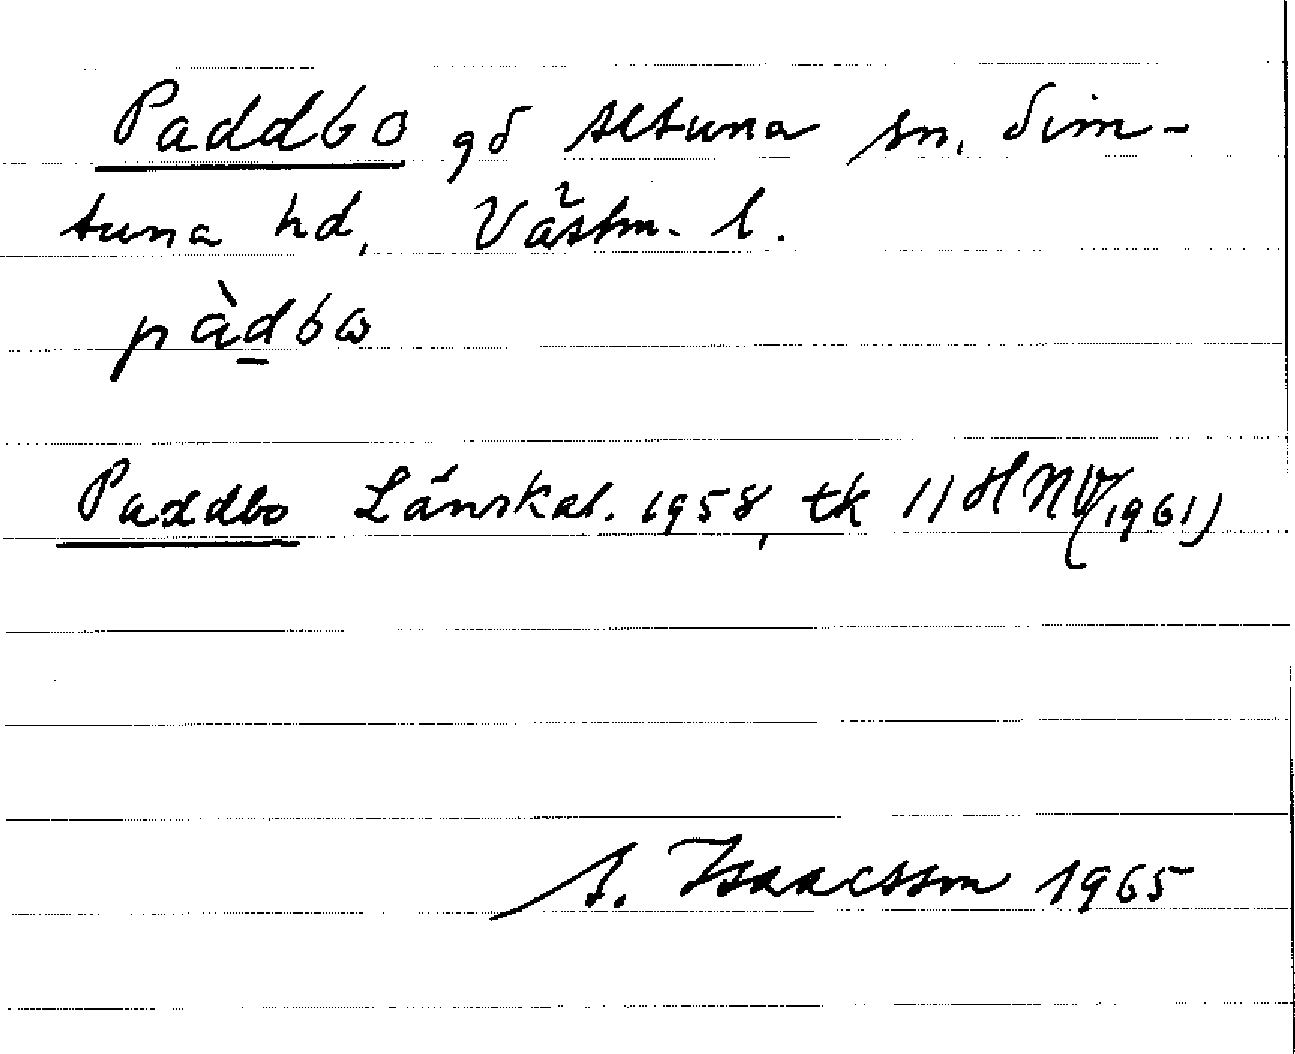 Paddbo gd Altuna sn, Sim-
tuna hd, Västm. l.
pàdbω
Paddbo Länskal. 1958, tk 11 H NV(1961)
A. Isaacsson 1965